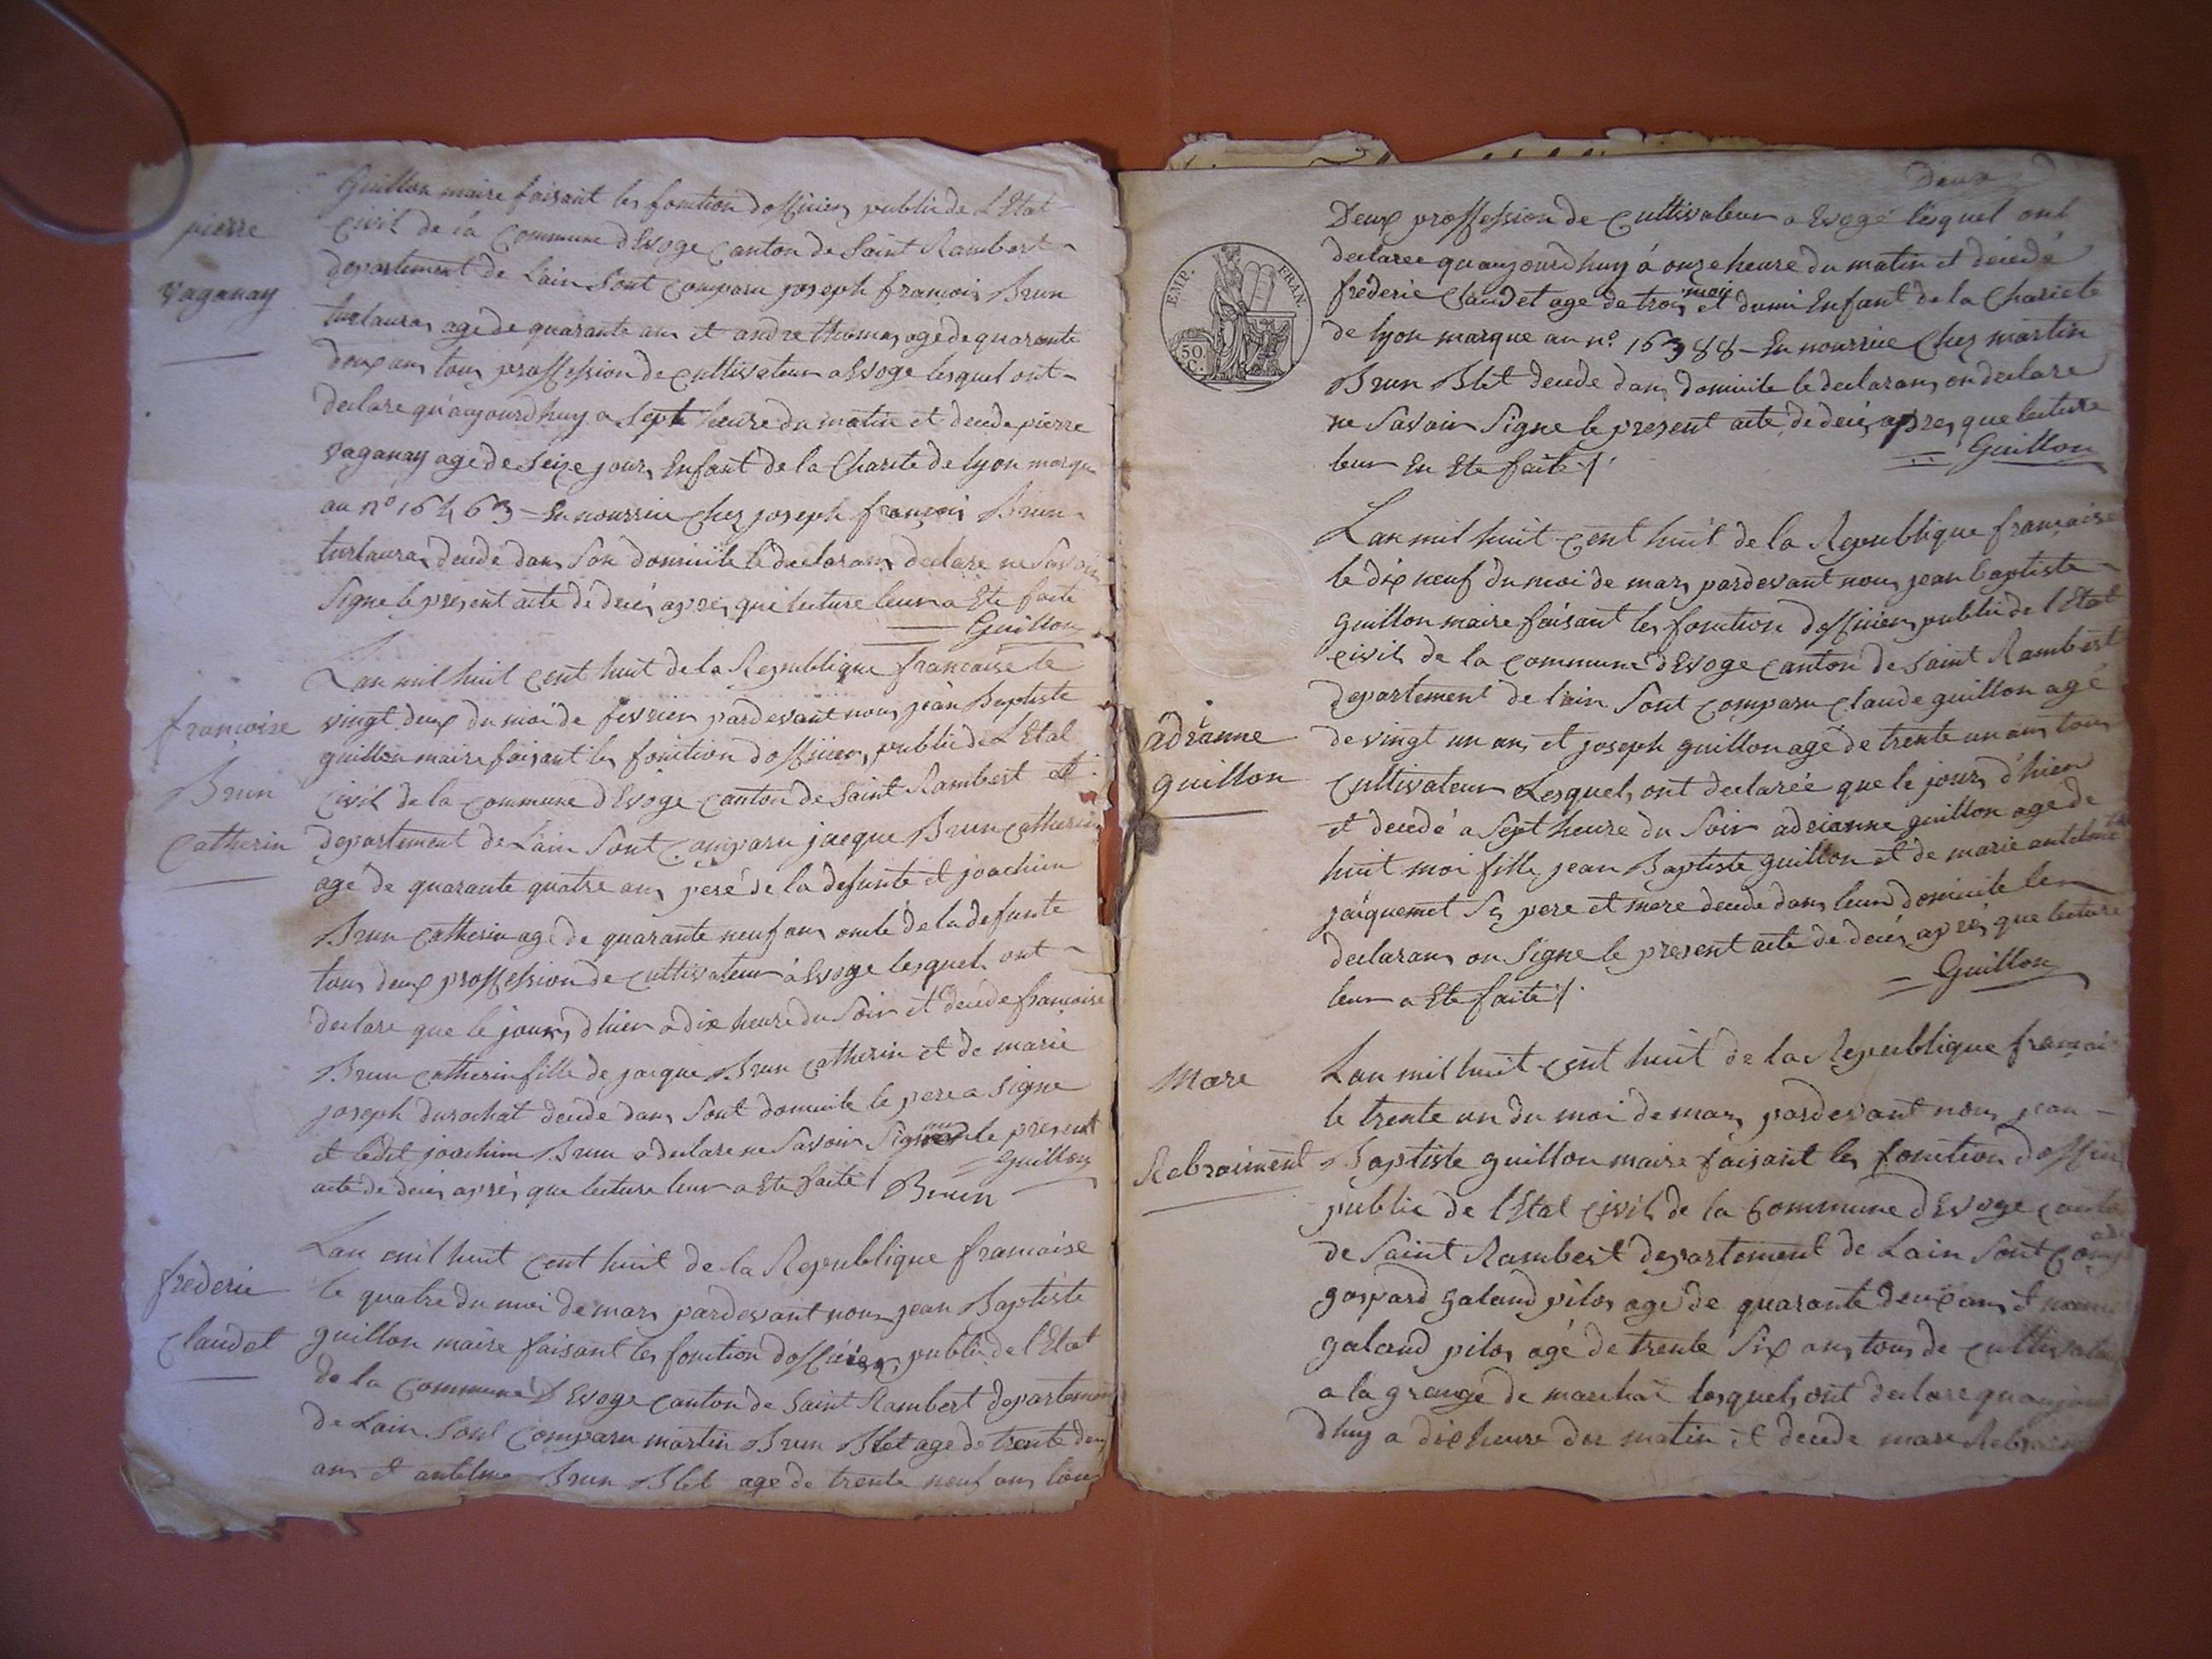 pierre
vaganay
Guillon maire faisant les fonction dofficiers public de LEtat
Civil de la Commune dEvoge Canton de Saint Rambert
departement de Lain Sont Comparu joseph francois Brun
turlaura agé de quarante ans et andre thomas agé de quarante
deux ans tous proffession de Cultivateur a Evoge lesquel ont
declare qu'aujourdhuy a Sept heure du matin et decede pierre
vaganay age de Seize jours Enfant de la Charité de lyon marque
au n° 16463 - En nourrice Chez joseph francois Brun
turlauras decede dans Son domicile le declarans declare ne Savoir
Signe le present acte de deces apres que lecture leur a Ete faite
Guillon
francoise
Brun
Catherin
Lan mil huit Cent huit de la Republique francaise le
vingt deux du moi de fevrier pardevant nous jean Baptiste
guillon maire faisant les fonction dofficiers public de LEtat
Civil de la Commune dEvoge Canton de Saint Rambert
departement de Lain Sont Comparu jacque Brun Catherin
agé de quarante quatre ans peré de la defunte et joachim
Brun Catherin agé de quarante neuf ans oncle de la defunte
tous deux proffession de Cultivateur á Evoge lesquel ont
declare que le jours dhier a dix heure du Soir et decede francoise
Brun Catherin fille de jacque Brun Catherin et de marie
joseph durochat decede dans Sont domicile le pere a Signe
et ledit joachim Brun a declare ne Savoir Signe le present
acte de deces aprés que lecture leur a Ete faite / Brun
Guillon
frederic
Claudet
Lan mil huit Cent huit de la Republique francaise
le quatre du moi de mars pardevant nous jean Baptiste
guillon maire faisant les fonction dofficiers public de l'Etat
de la Commune dEvoge Canton de Saint Rambert departement
de Lain Sont Comparu martin Brun Blet age de trente deux
ans et antelme Brun Blet age de trente neuf ans tous
Deux
EMP. FRAN
50
C.
Deux proffession de Cultivateur a Evoge lesquel ont
declaree quaujourdhuy á onze heure du matin et décédé
frederic Claudet age de trois moi et dumi Enfant de la Charicte
de lyon marque au n° 16388 - En nourrice Chez martin
Brun Blet decede dans domicile le declarans on declare
ne Savoir Signe le present acte de deces apres que lecture
leur En Ete faite /.
Guillon
adrianne
guillon
Lan mil huit Cent huit de la Republique francaise
le dix neuf du moi de mars pardevant nous jean baptiste
guillon maire faisant les fonction dofficiers public de l'Etat
Civil de la Commune dEvoge Canton de Saint Rambert
departement de lain Sont Comparu Claude guillon agé
de vingt un ans et joseph guillon agé de trente un ans tous
Cultivateur Lesquels ont declarée que le jours d'hier
et decedé a Sept heure du Soir adrianne guillon agé de
huit moi fille jean Baptiste guillon et de marie antelme
jacquemet Ses pere et mere decede dans leur domicile le
declarans on Signe le present acte de deces aprés que lecture
leur a Ete faite /.
Guillon
Marc
Rebraiment
Lan mil huit Cent huit de la Republique francai
le trente un du moi de mars pardevant nous jean
Baptiste guillon maire faisant les fonction dofficier
public de lEtat Civil de la Commune dEvoge canton
de Saint Rambert departement de Lain Sont
gaspard galand pilos age de quarante deux ans et
galand pilos agé de trente Six ans tous de Cultivateur
a la grange de marchat lesquels ont declare quaujour
dhuy a dix heure du matin et decede marc